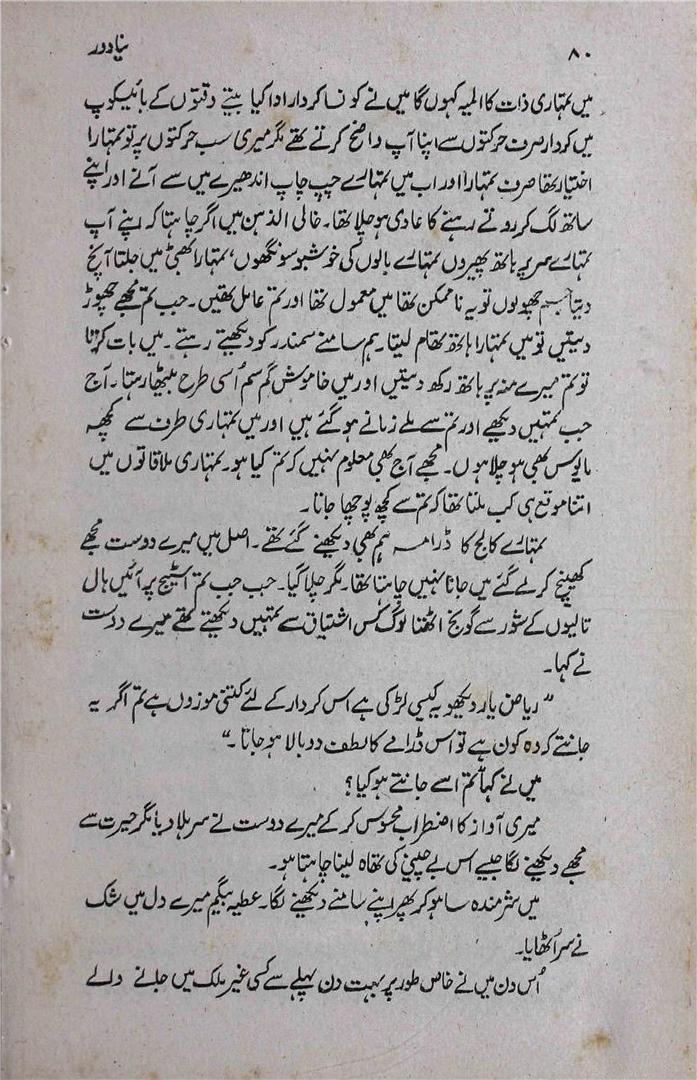 ۸۰ نیا دور
میں تمہاری ذات کا المیہ کہوں گا میں نے کونسا کردار ادا کیا بیتے وقتوں کے بائیسکوپ
میں کردار صرف حرکتوں سے اپنا آپ واضح کرتے تھے مگر میری سب حرکتوں پر تو تمہارا
اختیار تھا صرف تمہارا اور اب میں تمہارے چپ چاپ اندھیرے میں سے آنے اور اپنے
ساتھ لگ کر روتے رہنے کا عادی ہو چلا تھا۔ خالی الذہن میں اگر چاہتا کہ اپنے آپ
تمہارے سر پر ہاتھ پھیروں تمہارے بالوں کی خوشبو سونگھوں، تمہارا بھٹی میں جلتا آنچ
دیتا جسم چھولوں تو یہ ناممکن تھا میں معمول تھا اور تم عامل تھیں۔ جب تم مجھے چھوڑ
دیتیں تو میں تمہارا ہاتھ تھام لیتا۔ ہم سامنے سمندر کو دیکھتے رہتے۔ میں بات کرتا
تو تم میرے منہ پر ہاتھ رکھ دیتیں اور میں خاموش گم سم اُسی طرح بیٹھا رہتا۔ آج
جب تمہیں دیکھے اور تم سے ملے زمانے ہو گئے ہیں اور میں تمہاری طرف سے کچھ
مایوس بھی ہو چلا ہوں۔ مجھے آج بھی معلوم نہیں کہ تم کیا ہو۔ تمہاری ملاقاتوں میں
اتنا موقع ہی کب ملتا تھا کہ تم سے کچھ پوچھا جاتا۔
تمہارے کالج کا ڈرامہ ہم بھی دیکھنے گئے تھے۔ اصل میں میرے دوست مجھے
کھینچ کر لے گئے میں جانا نہیں چاہتا تھا۔ مگر چلا گیا۔ جب جب تم اسٹیج پر آئیں ہال
تالیوں کے شور سے گونج اٹھتا لوگ کس اشتیاق سے تمہیں دیکھتے تھے میرے دوست
نے کہا۔
"ریاض یار دیکھو یہ کیسی لڑکی ہے اس کردار کے لئے کتنی موزوں ہے تم اگر یہ
جانتے کہ وہ کون ہے تو اس ڈرامے کا لطف دوبالا ہو جاتا۔"
میں نے کہا تم اسے جانتے ہو کیا؟
میری آواز کا اضطراب محسوس کر کے میرے دوست نے سر ہلا دیا مگر حیرت سے
مجھے دیکھنے لگا جیسے اس بے چینی کی تھاہ لینا چاہتا ہو۔
میں شرمندہ سا ہو کر پھر اپنے سامنے دیکھنے لگا۔ عطیہ بیگم میرے دل میں شک
نے سر اُٹھایا۔
اُس دن میں نے خاص طور پر بہت دن پہلے سے کسی غیر ملک میں جانے والے